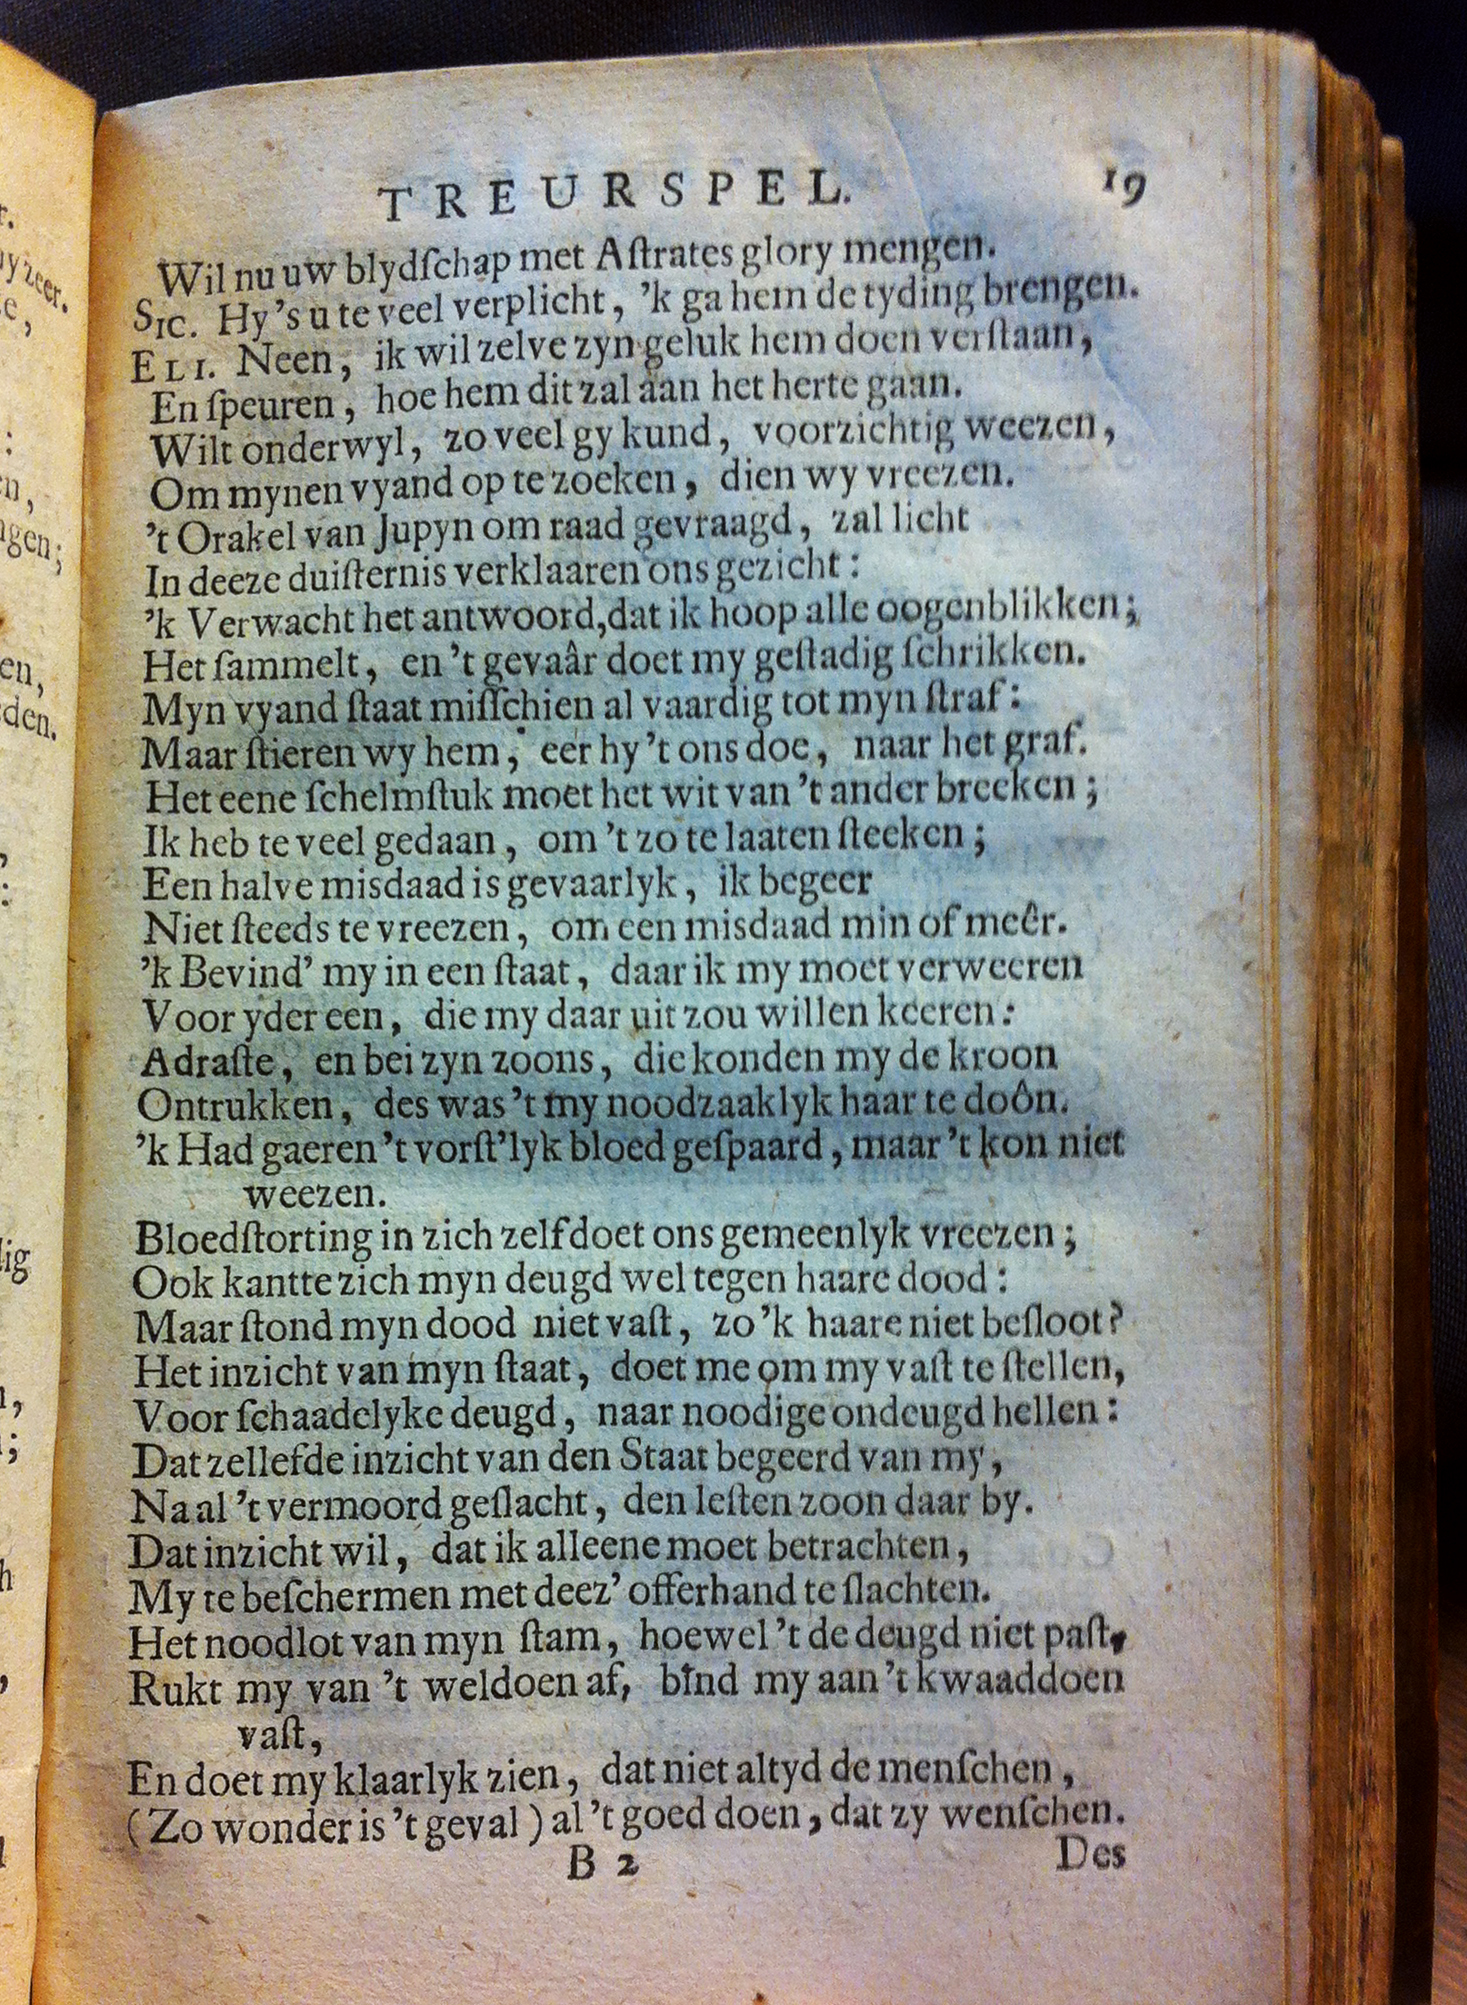 TREURSPEL. 19
Wil nu uw blydſchap met Aſtrates glory mengen.
SIC. Hy 's u te veel verplicht, 'k ga hem de tyding brengen.
ELI. Neen, ik wil zelve zyn geluk hem doen verſtaan,
En ſpeuren, hoe hem dit zal aan het herte gaan.
Wilt onderwyl, zo veel gy kund, voorzichtig weezen,
Om mynen vyand op te zoeken, dien wy vreezen.
't Orakel van Jupyn om raad gevraagd, zal licht
In deeze duiſternis verklaaren ons gezicht:
'k Verwacht het antwoord, dat ik hoop alle oogenblikken;
Het ſammelt, en 't gevaâr doet my geſtadig ſchrikken.
Myn vyand ſtaat miſſchien al vaardig tot myn ſtraf:
Maar ſtieren wy hem, eer hy 't ons doe, naar het graf.
Het eene ſchelmſtuk moet het wit van 't ander breeken;
Ik heb te veel gedaan, om 't zo te laaten ſteeken;
Een halve misdaad is gevaarlyk, ik begeer
Niet ſteeds te vreezen, om een misdaad min of meêr.
'k Bevind' my in een ſtaat, daar ik my moet verweeren
Voor yder een, die my daar uit zou willen keeren:
Adraſte, en bei zyn zoons, die konden my de kroon
Ontrukken, des was 't my noodzaaklyk haar te doôn.
'k Had gaeren 't vorſt'lyk bloed geſpaard, maar 't kon niet
weezen.
Bloedſtorting in zich zelf doet ons gemeenlyk vreezen;
Ook kantte zich myn deugd wel tegen haare dood:
Maar ſtond myn dood niet vaſt, zo 'k haare niet beſloot?
Het inzicht van myn ſtaat, doet me om my vaſt te ſtellen,
Voor ſchaadelyke deugd, naar noodige ondeugd hellen:
Dat zellefde inzicht van den Staat begeerd van my,
Na al 't vermoord geſlacht, den leſten zoon daar by.
Dat inzicht wil, dat ik alleene moet betrachten,
My te beſchermen met deez' offerhand te ſlachten.
Het noodlot van myn ſtam, hoewel 't de deugd niet paſt,
Rukt my van 't weldoen af, bind my aan 't kwaaddoen
vaſt,
En doet my klaarlyk zien, dat niet altyd de menſchen,
(Zo wonder is 't geval) al 't goed doen, dat zy wenſchen.
B 2 Des